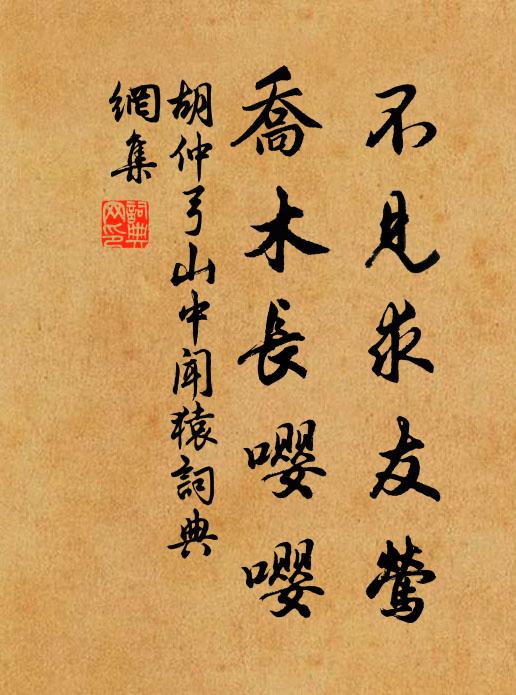 不見求友鶯
喬木長嚶嚶
胡仲弓山中闻猿詞典
網集
詞典
网印